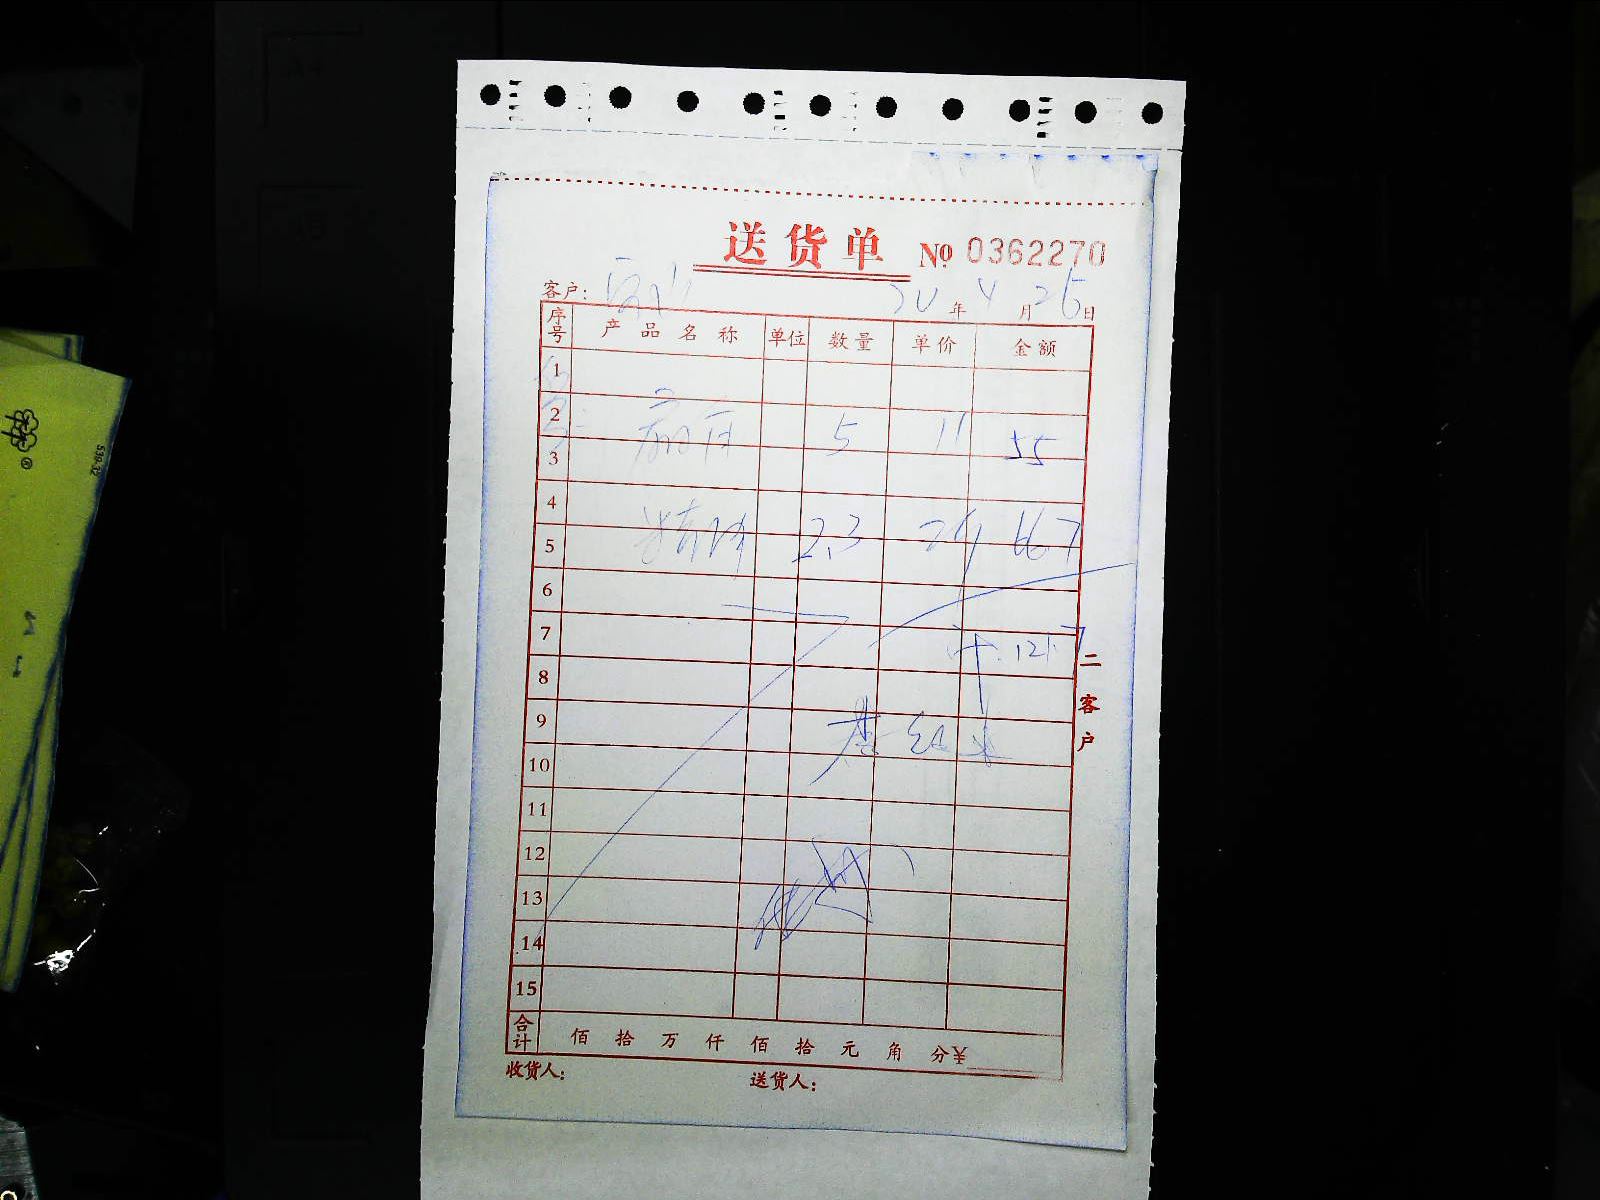 送货单 № 0362270
客户： 20年4月26日
序号 产品名称 单位 数量 单价 金额
1
2 5 11 55
3
4
5 精沛 2.3 29 66.7
6
7 计.121.7
8
9
10
11
12
13
14
15
合计 佰 拾 万 仟 佰 拾 元 角 分¥
收货人： 送货人：
二客户